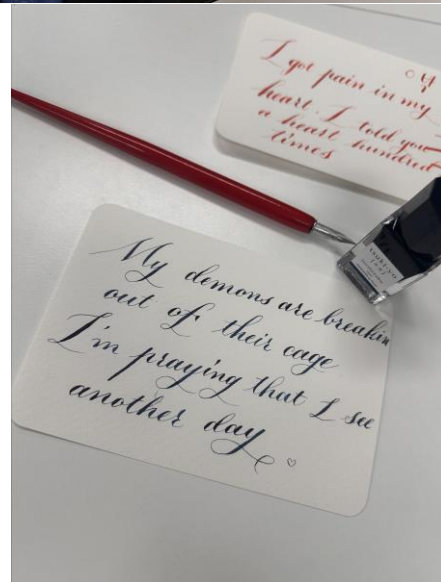 I got pain in my
heart. I told you
a heart hundred
times
tsuki-yo
My demons are breakin
out of their cage
I'm praying that I see
another day